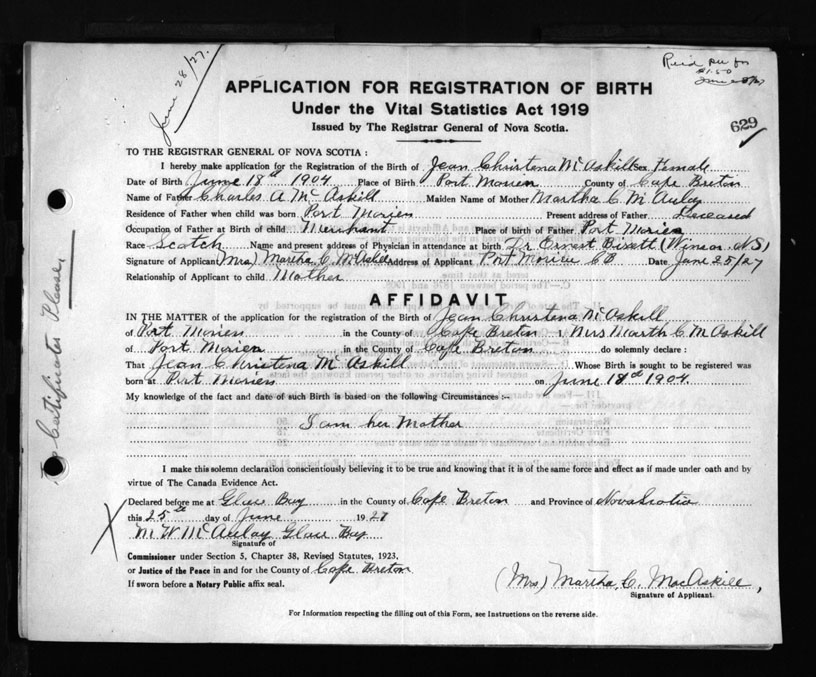 June 28/27.
$1.50
APPLICATION FOR REGISTRATION OF BIRTH
Under the Vital Statistics Act 1919
Issued by The Registrar General of Nova Scotia.
629
TO THE REGISTRAR GENERAL OF NOVA SCOTIA :
I hereby make application for the Registration of the Birth of Jean Christena McAskill Sex Female
Date of Birth June 18th 1904 Place of Birth Port Morien County of Cape Breton
Name of Father Charles A McAskill Maiden Name of Mother Martha C McAulay
Residence of Father when child was born Port Morien Present address of Father Deceased
Occupation of Father at Birth of child Merchant Place of birth of Father Port Morien
Race Scotch Name and present address of Physician in attendance at birth Dr Ernest Bissett (Windsor NS)
Signature of Applicant (Mrs) Martha. C. McAskill Address of Applicant Port Morien CB Date June 25/27
Relationship of Applicant to child Mother
AFFIDAVIT
IN THE MATTER of the application for the registration of the Birth of Jean Christena McAskill
of Port Morien in the County of Cape Breton I Mrs Marth C McAskill
of Port Morien in the County of Cape Breton do solemnly declare :
That Jean Christena McAskill Whose Birth is sought to be registered was
born at Port Morien on June 18th 1904.
My knowledge of the fact and date of such Birth is based on the following Circumstances :—
I am her Mother
I make this solemn declaration conscientiously believing it to be true and knowing that it is of the same force and effect as if made under oath and by
virtue of The Canada Evidence Act.
Declared before me at Glace Bay in the County of Cape Breton and Province of Nova Scotia
this 25th day of June 1927
M W McAulay Glace Bay
Signature of
Commissioner under Section 5, Chapter 38, Revised Statutes, 1923,
or Justice of the Peace in and for the County of Cape Breton
If sworn before a Notary Public affix seal.
(Mrs) Martha. C. MacAskill,
Signature of Applicant.
For Information respecting the filling out of this Form, see Instructions on the reverse side.
Certificates Please,